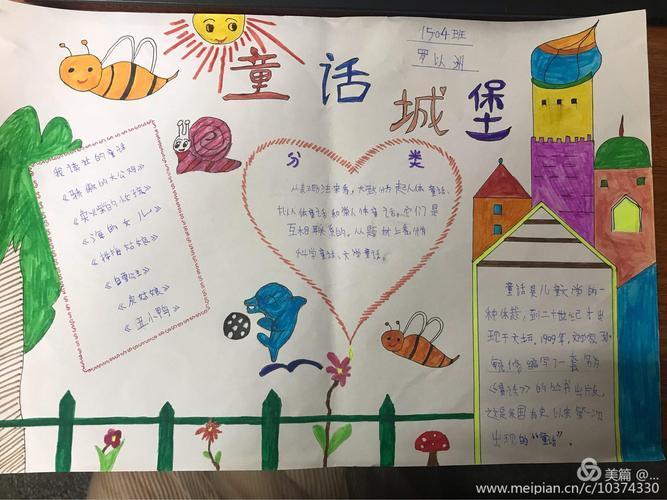 童话城堡
1504班
罗以洲
我读过的童话
《骄傲的大公鸡》
《海的女儿》
《拇指姑娘》
《白雪公主》
《灰姑娘》
《丑小鸭》
分类
从表现方法来看，大致分为超人体童话、
拟人体童话和常人体童话。它们是
互相联系的，从题材上看有
科学童话、文学童话。
童话是儿童文学的一
种体裁，到二十世纪才出
现于大坛，1909年，
编写了一套名为
《童话》的丛书出版，
这是我国有史以来第一次
出现的“童话”。
美篇 @...
www.meipian.cn/c/10374330